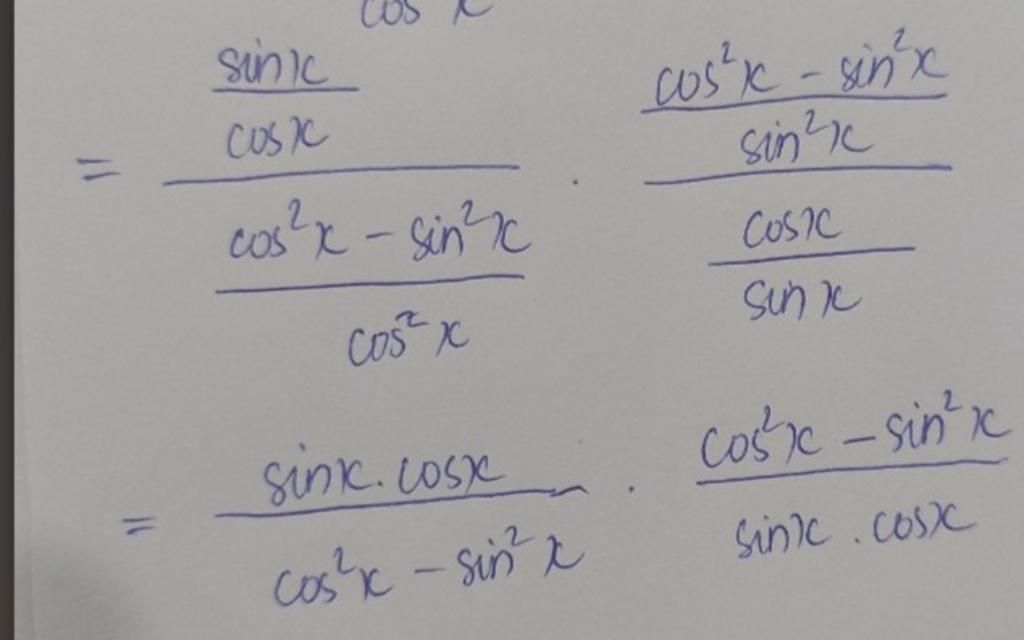 cos x
= \frac{\frac{sinx}{cosx}}{\frac{cos²x - sin²x}{cos²x}} . \frac{\frac{cos²x - sin²x}{sin²x}}{\frac{cosx}{sinx}}
= \frac{sinx . cosx}{cos²x - sin²x} . \frac{cos²x - sin²x}{sinx . cosx}